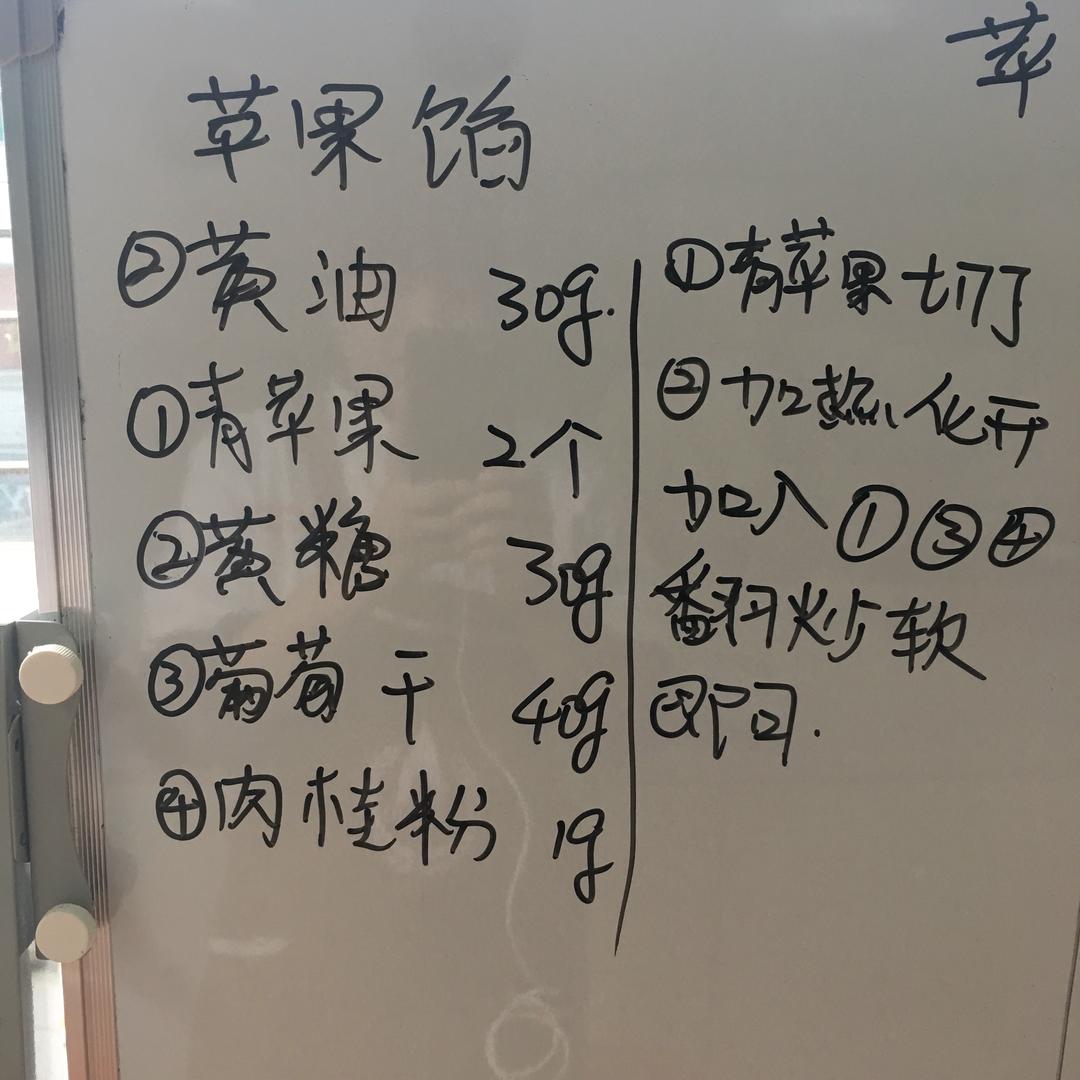 苹
苹果馅
②黄油 30g.
①青苹果 2个
②黄糖 30g
③葡萄干 40g
④肉桂粉 1g
①青苹果切丁
②加热化开
加入①③④
翻炒软
即可.